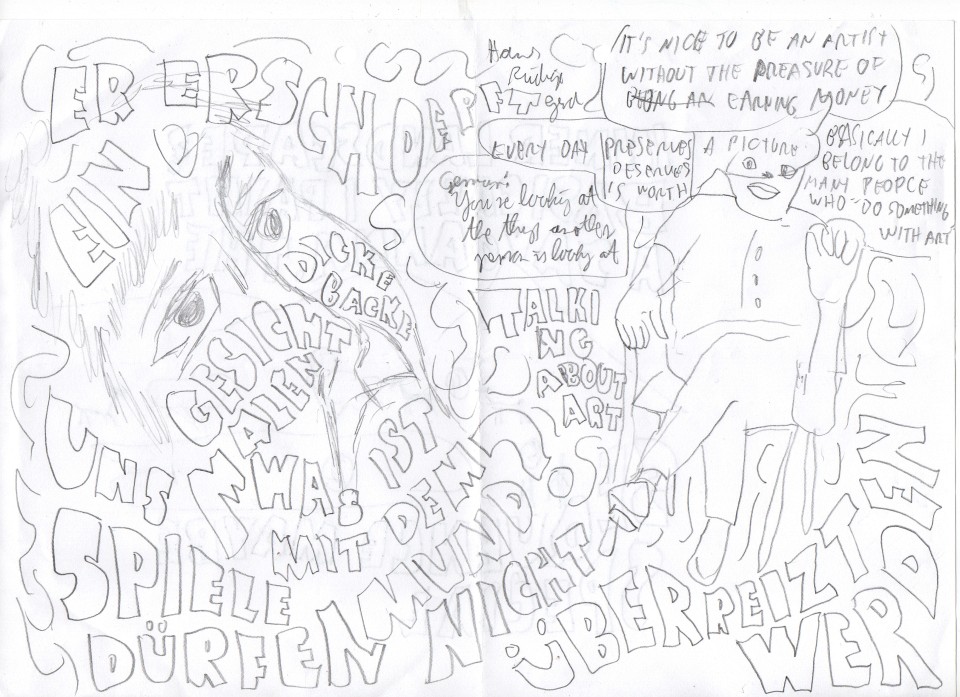 ER ERSCHÖPF
EIN
DICKE
BACKE
GESICHT
MALEN
UNS
WAS IST
MIT DEM
MUND
SPIELE
DÜRFEN NICHT
ÜBERREIZT
WERDEN
Hans
IT'S NICE TO BE AN ARTIST
WITHOUT THE PREASURE OF
EARNING MONEY
EVERY DAY PRESERVES A PICTURE
DESERVES
IS WORTH
BASICALLY I
BELONG TO THE
MANY PEOPLE
WHO DO SOMETHING
WITH ART
You're looking at
the thing another
person is looking at
TALKI
NG
ABOUT
ART